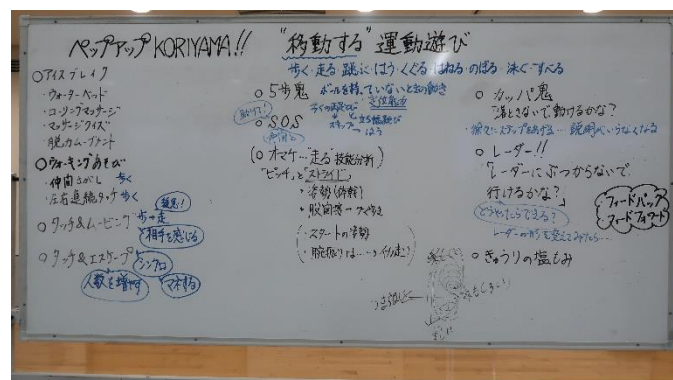 ペップアップKORIYAMA!!
"移動する"運動遊び
歩く・走る・跳ぶ・はう・くぐる・はねる・のぼる・泳ぐ・すべる
○アイスブレイク
・ウォーターベッド
・コーリングマッサージ
・マッサージクイズ
・脱力ムーブメント
○ウォーキングあそび
・仲間さがし 歩く
・左右連続タッチ 歩く
○タッチ&ムービング 歩→走
相手を感じる
○タッチ&エスケープ
シンクロ
人数を増やす
マネする
○5歩鬼 ボールを持っていないときの動き
○S.O.S
スキップ
はう
(○オマケ…"走る"技能分析)
「ピッチ」と「ストライド」
・姿勢(体幹)
・股関節
・スタートの姿勢
・腕振りは
○カッパ鬼
「落とさないで動けるかな?」
・徐々にステップを踏める… 説明がいらなくなる
○レーダー!!
「レーダーにぶつからないで
行けるかな?」
どうやったらできる?
レーダーの形も変えてみたら…
フィードバック
フィードフォワード
○きゅうりの塩もみ